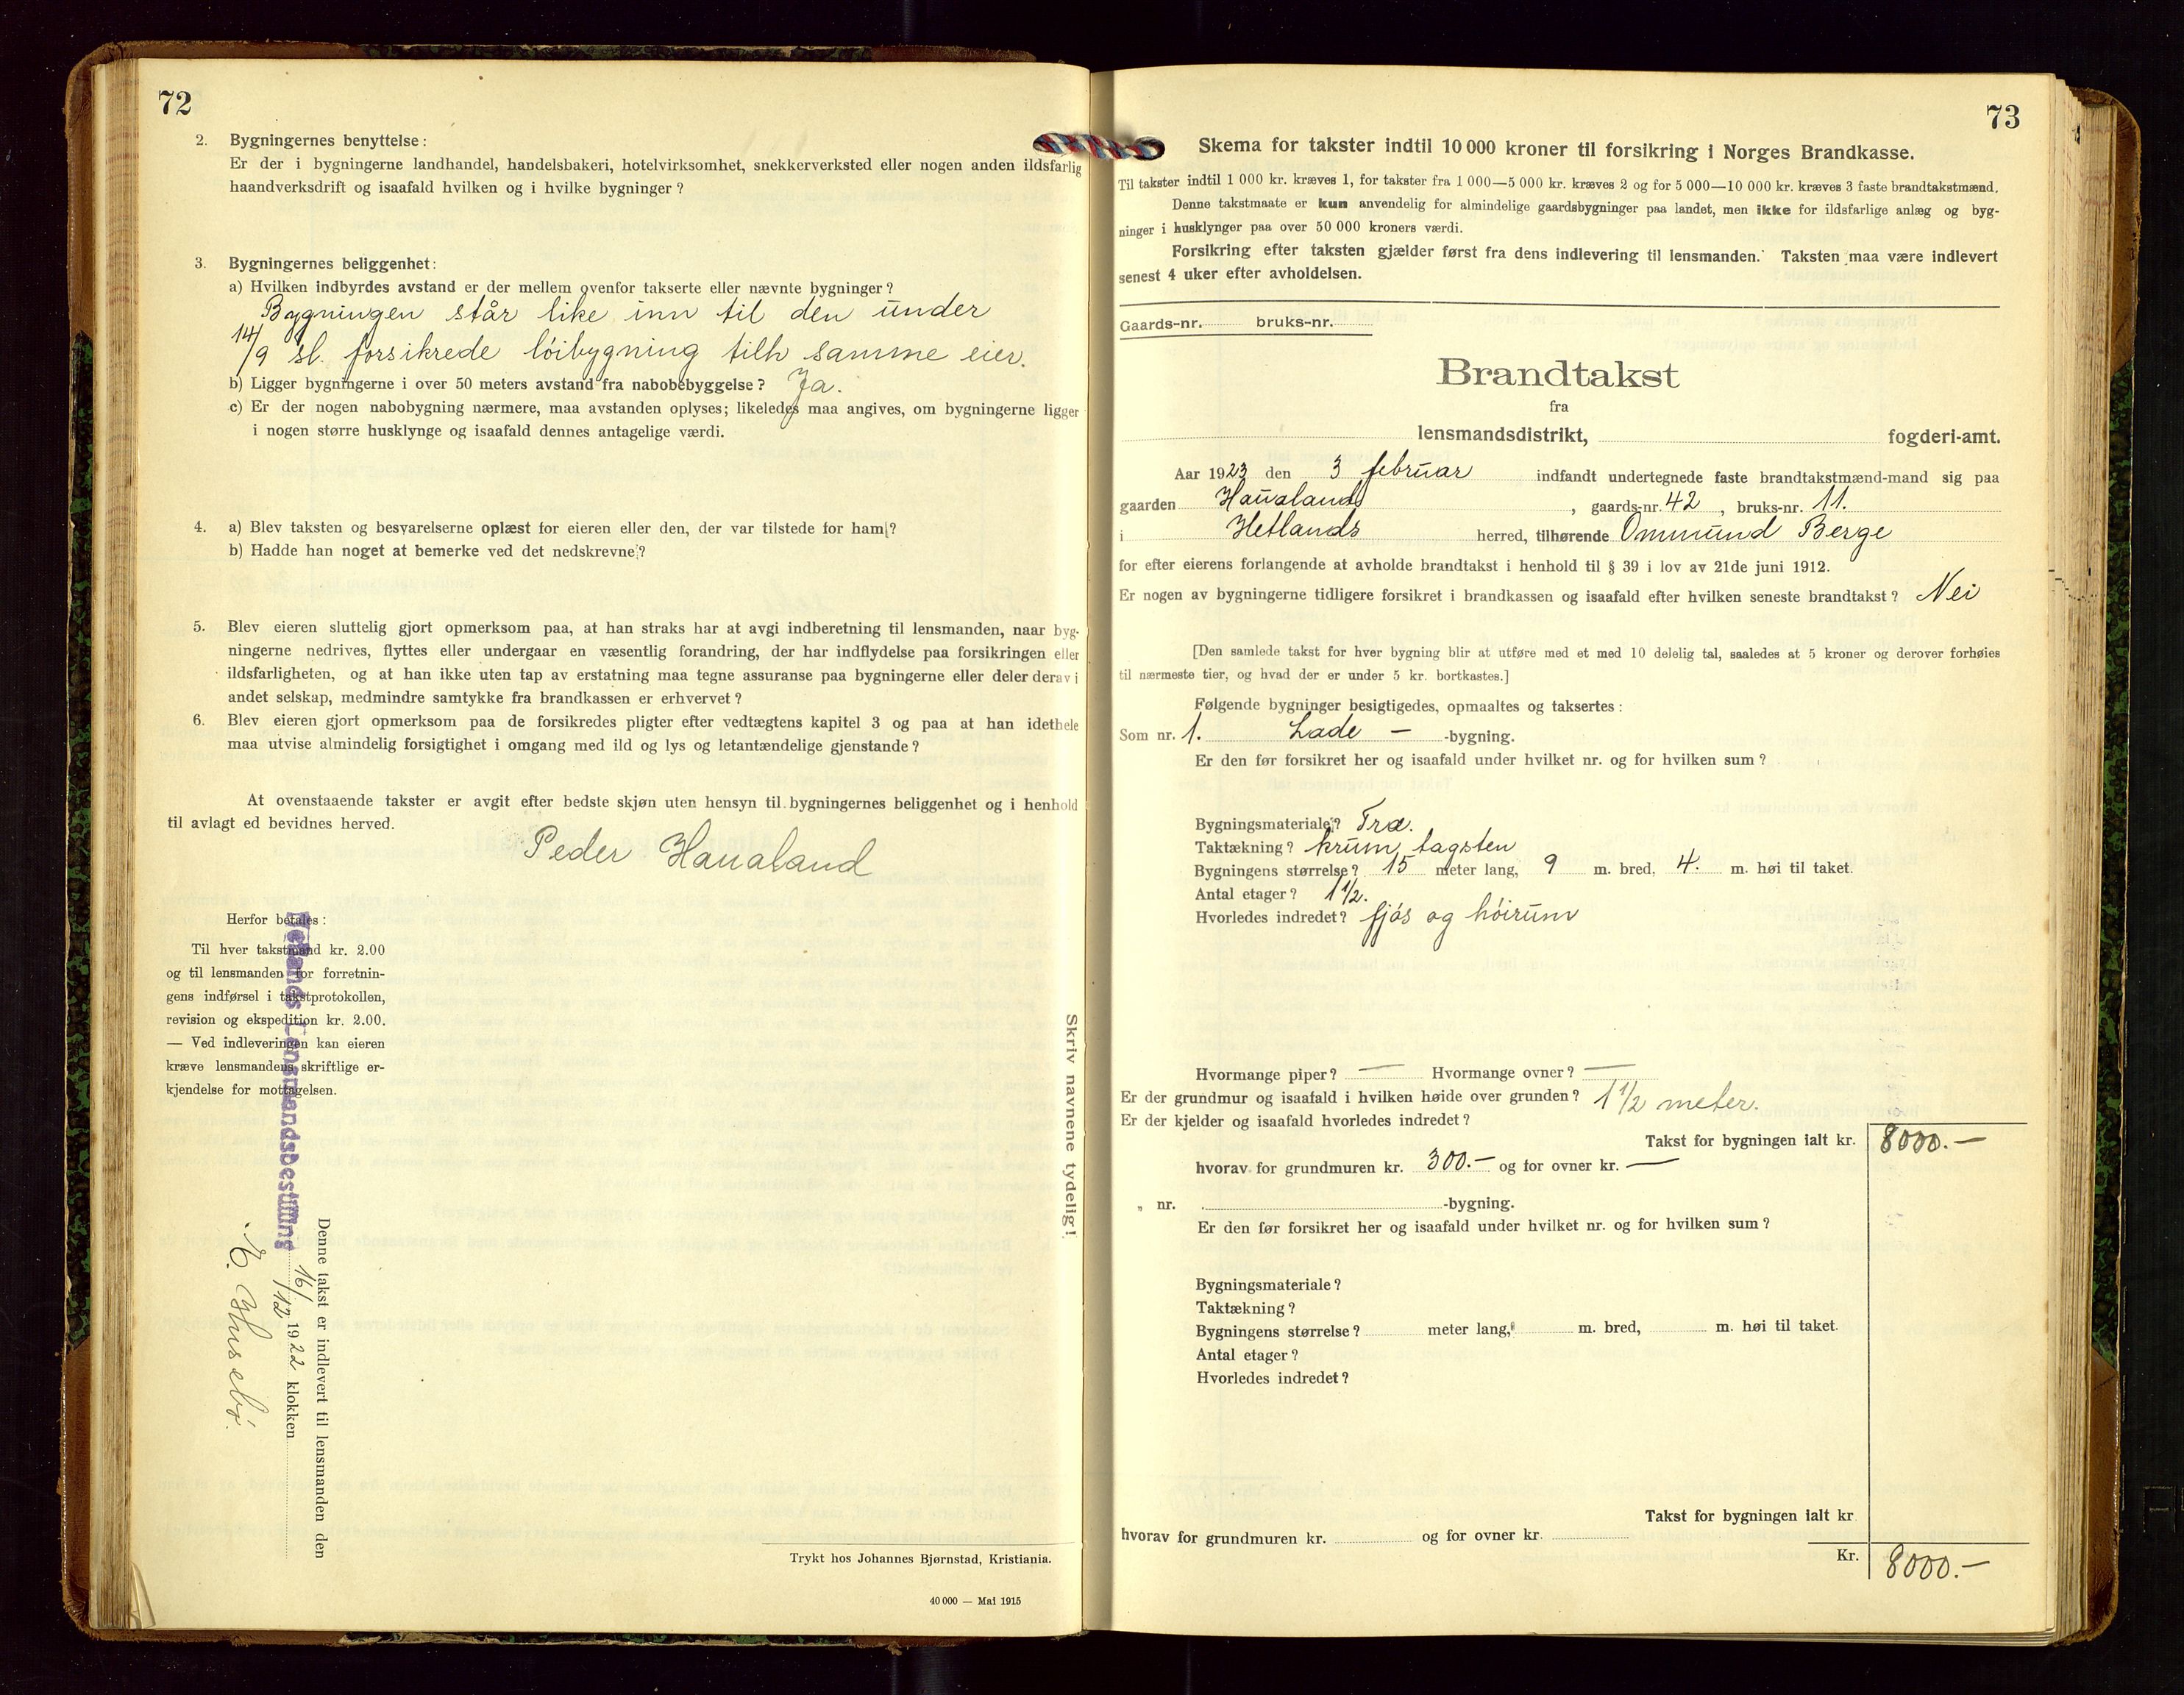 72
2. Bygningernes benyttelse:
Er der i bygningerne landhandel, handelsbakeri, hotelvirksomhet, snekkerverksted eller nogen anden ildsfarlig
haandverksdrift og isaafald hvilken og i hvilke bygninger?
3. Bygningernes beliggenhet:
a) Hvilken indbyrdes avstand er der mellem ovenfor takserte eller nævnte bygninger?
Bygningen står like inn til den under
14/9 sl. forsikrede löibygning tilh samme eier.
b) Ligger bygningerne i over 50 meters avstand fra nabobebyggelse? Ja.
c) Er der nogen nabobygning nærmere, maa avstanden oplyses; likeledes maa angives, om bygningerne ligger
i nogen større husklynge og isaafald dennes antagelige værdi.
4. a) Blev taksten og besvarelserne oplæst for eieren eller den, der var tilstede for ham?
b) Hadde han noget at bemerke ved det nedskrevne?
5. Blev eieren sluttelig gjort opmerksom paa, at han straks har at avgi indberetning til lensmanden, naar byg-
ningerne nedrives, flyttes eller undergaar en væsentlig forandring, der har indflydelse paa forsikringen eller
ildsfarligheten, og at han ikke uten tap av erstatning maa tegne assuranse paa bygningerne eller deler derav i
andet selskap, medmindre samtykke fra brandkassen er erhvervet?
6. Blev eieren gjort opmerksom paa de forsikredes pligter efter vedtægtens kapitel 3 og paa at han idethele
maa utvise almindelig forsigtighet i omgang med ild og lys og letantændelige gjenstande?
At ovenstaaende takster er avgit efter bedste skjøn uten hensyn til bygningernes beliggenhet og i henhold
til avlagt ed bevidnes herved.
Peder Haualand
Herfor betales:
Til hver takstmand kr. 2.00
og til lensmanden for forretnin-
gens indførsel i takstprotokollen,
revision og ekspedition kr. 2.00.
— Ved indleveringen kan eieren
kræve lensmandens skriftlige er-
kjendelse for mottagelsen.
Skriv navnene tydelig!
Denne takst er indlevert til lensmanden den
16/12 1922 klokken
Hetlands Lensmandsbestilling
E. Husebø.
Trykt hos Johannes Bjørnstad, Kristiania.
40 000 — Mai 1915
73
Skema for takster indtil 10 000 kroner til forsikring i Norges Brandkasse.
Til takster indtil 1 000 kr. kræves 1, for takster fra 1 000—5 000 kr. kræves 2 og for 5 000—10 000 kr. kræves 3 faste brandtakstmænd.
Denne takstmaate er kun anvendelig for almindelige gaardsbygninger paa landet, men ikke for ildsfarlige anlæg og byg-
ninger i husklynger paa over 50 000 kroners værdi.
Forsikring efter taksten gjælder først fra dens indlevering til lensmanden. Taksten maa være indlevert
senest 4 uker efter avholdelsen.
Gaards-nr. bruks-nr.
Brandtakst
fra
lensmandsdistrikt, fogderi-amt.
Aar 1923 den 3 februar indfandt undertegnede faste brandtakstmænd-mand sig paa
gaarden Haualand, gaards-nr. 42, bruks-nr. 11.
i Hetlands herred, tilhørende Ommund Berge
for efter eierens forlangende at avholde brandtakst i henhold til § 39 i lov av 21de juni 1912.
Er nogen av bygningerne tidligere forsikret i brandkassen og isaafald efter hvilken seneste brandtakst? Nei
[Den samlede takst for hver bygning blir at utføre med et med 10 delelig tal, saaledes at 5 kroner og derover forhøies
til nærmeste tier, og hvad der er under 5 kr. bortkastes.]
Følgende bygninger besigtigedes, opmaaltes og taksertes:
Som nr. 1. Lade - -bygning.
Er den før forsikret her og isaafald under hvilket nr. og for hvilken sum?
Bygningsmateriale? Træ.
Taktækning? krum tagsten
Bygningens størrelse? 15 meter lang, 9 m. bred, 4. m. høi til taket.
Antal etager? 1½.
Hvorledes indredet? fjós og hóirum
Hvormange piper? — Hvormange ovner? —
Er der grundmur og isaafald i hvilken høide over grunden? 1½ meter.
Er der kjelder og isaafald hvorledes indredet?
Takst for bygningen ialt kr. 8000.—
hvorav for grundmuren kr. 300.— og for ovner kr. —
„ nr. -bygning.
Er den før forsikret her og isaafald under hvilket nr. og for hvilken sum?
Bygningsmateriale?
Taktækning?
Bygningens størrelse? meter lang, m. bred, m. høi til taket.
Antal etager?
Hvorledes indredet?
Takst for bygningen ialt kr
hvorav for grundmuren kr. og for ovner kr.
Kr. 8000.—